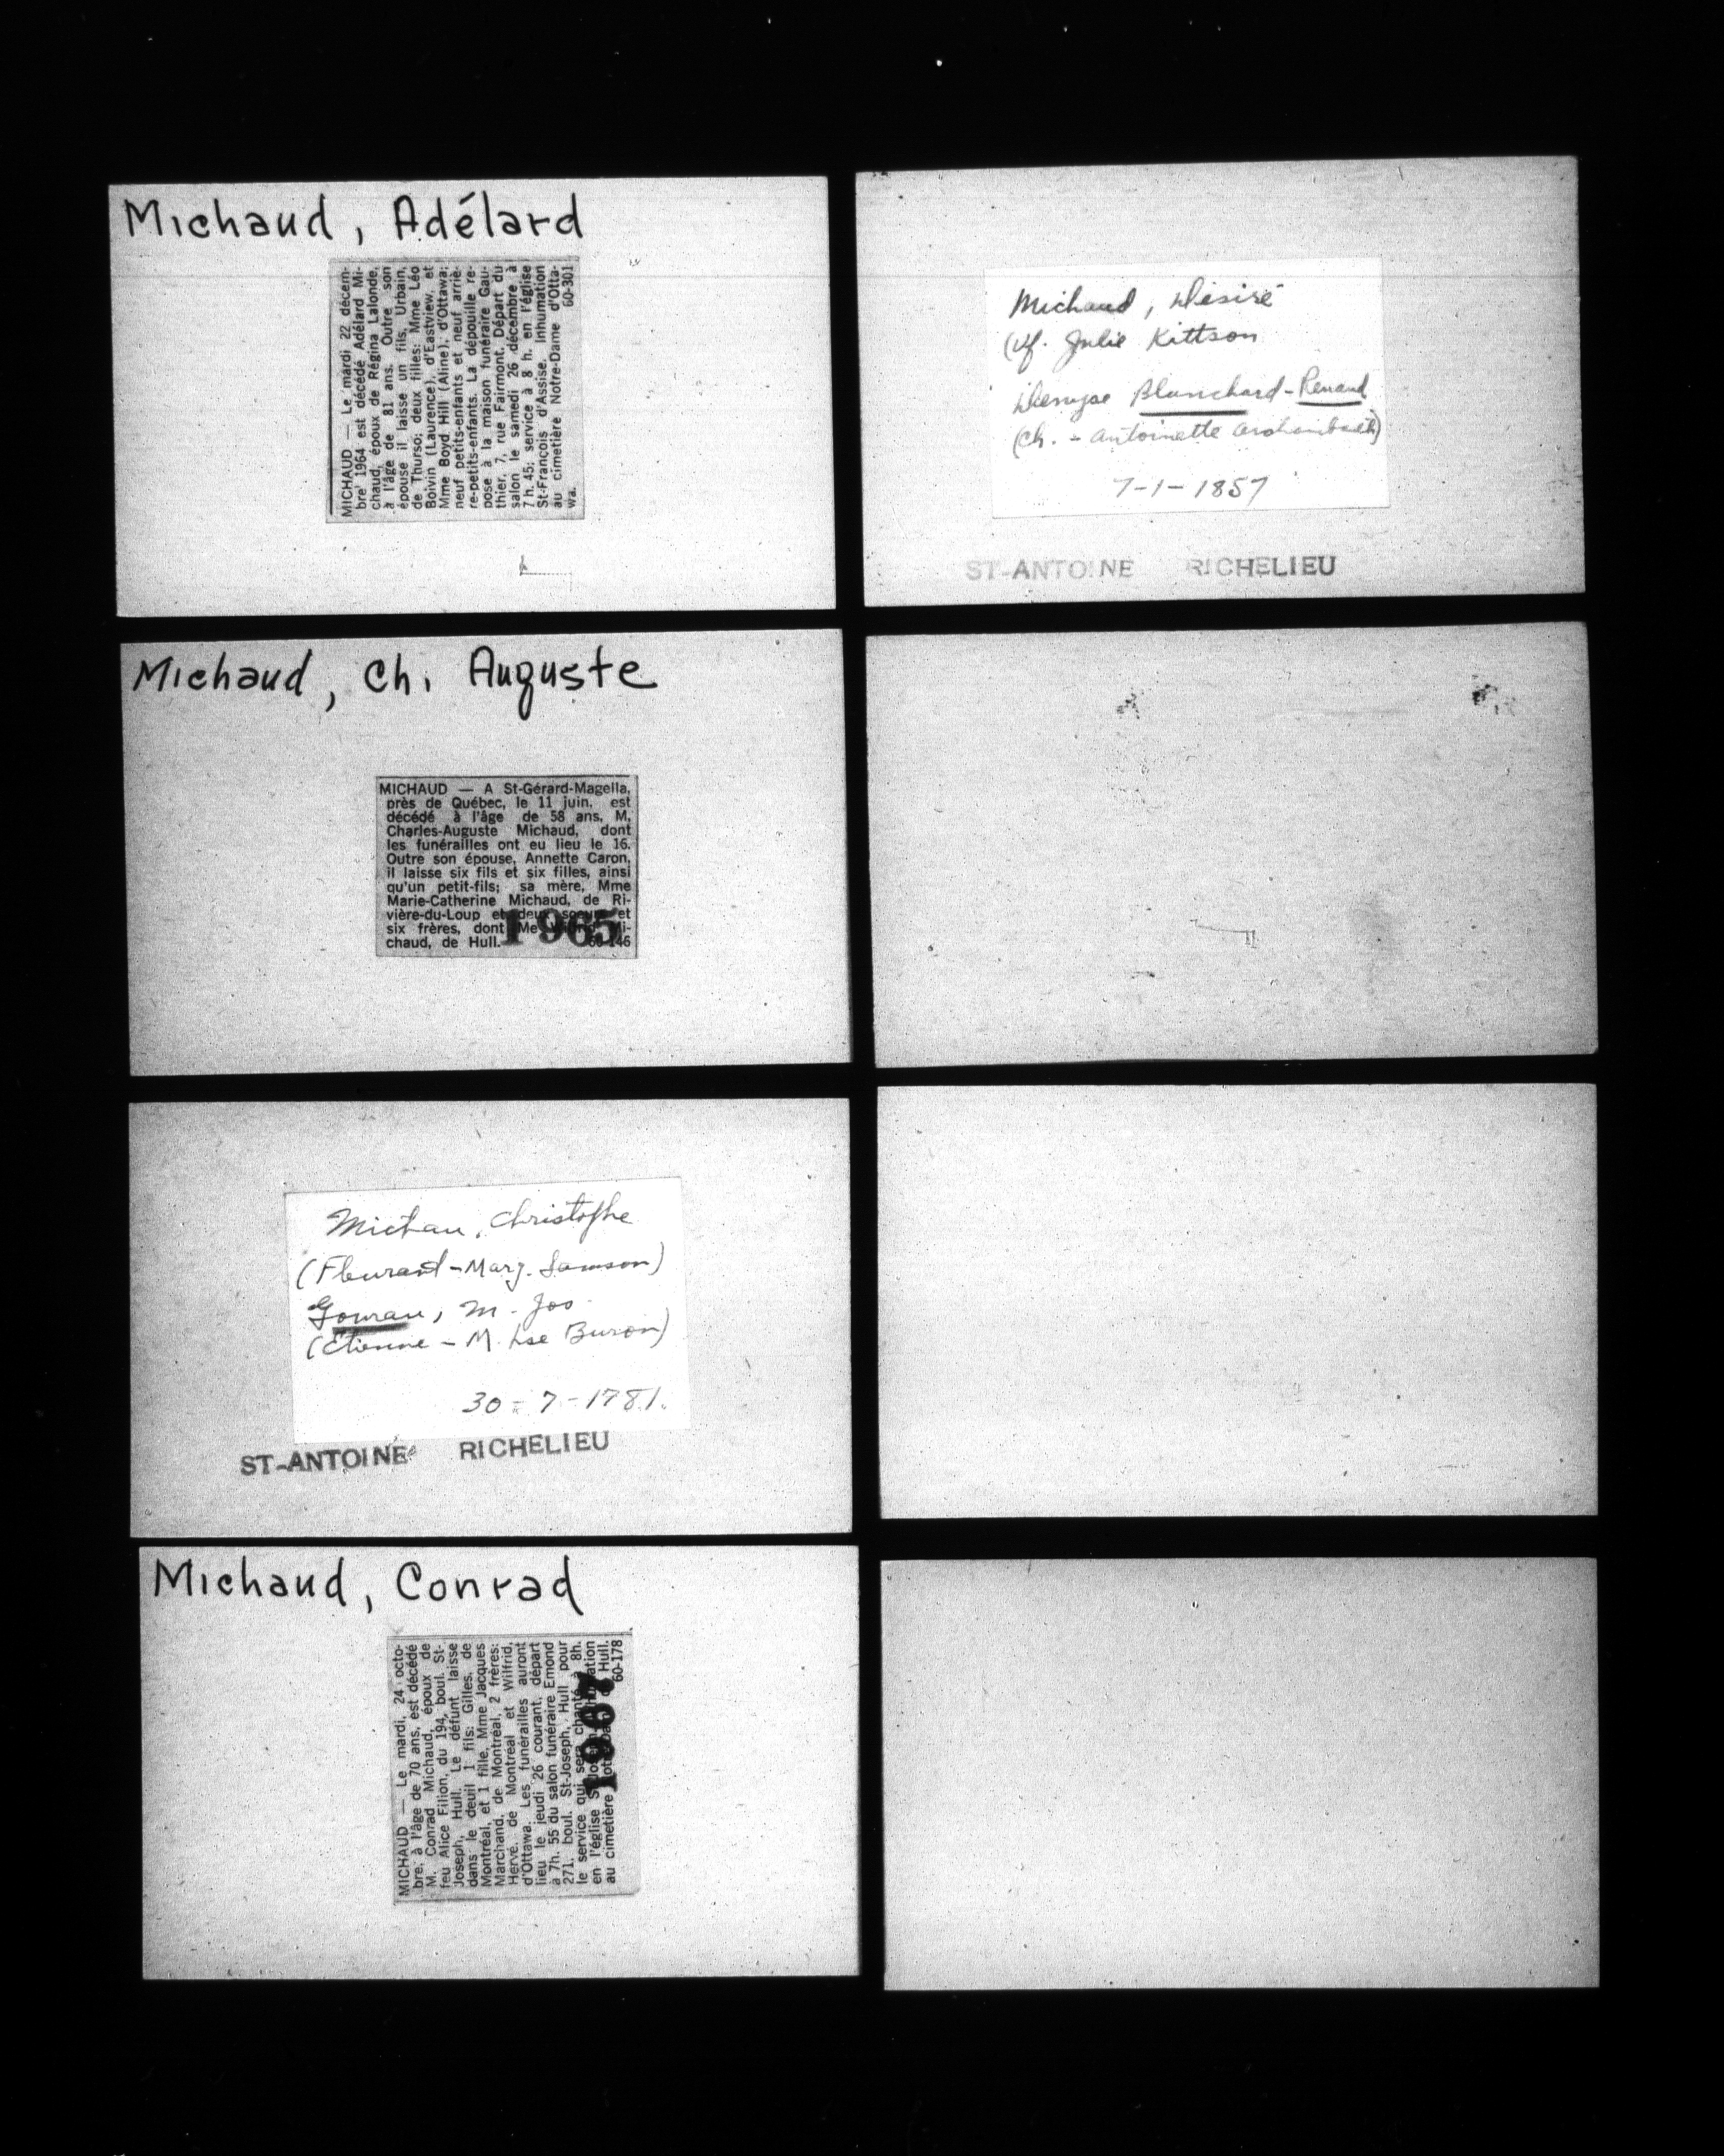 Michaud, Adélard
MICHAUD — Le mardi 22 décem-
bre 1964 est décédé Adélard Mi-
chaud, époux de Régina Lalonde,
à l'âge de 81 ans. Outre son
épouse il laisse un fils, Urbain,
de Thurso; deux filles: Mme Léo
Boivin (Laurence), d'Eastview, et
Mme Boyd Hill (Aline), d'Ottawa;
neuf petits-enfants et neuf arriè-
re-petits-enfants. La dépouille re-
pose à la maison funéraire Gau-
thier, 7, rue Fairmont. Départ du
salon le samedi 26 décembre à
7 h. 45; service à 8 h. en l'église
St-François d'Assise. Inhumation
au cimetière Notre-Dame d'Otta-
wa. 60-301
Michaud, Ch. Auguste
MICHAUD — A St-Gérard-Magella,
près de Québec, le 11 juin, est
décédé à l'âge de 58 ans, M.
Charles-Auguste Michaud, dont
les funérailles ont eu lieu le 16.
Outre son épouse, Annette Caron,
il laisse six fils et six filles, ainsi
qu'un petit-fils; sa mère, Mme
Marie-Catherine Michaud, de Ri-
vière-du-Loup et deux soeurs et
six frères, dont Me Mi-
chaud, de Hull. 146
1965
Michau, Christophe
(Fleurant - Marg. Samson)
Gourau, M. Jos
(Etienne - M. Lse Buron)
30-7-1781.
ST-ANTOINE RICHELIEU
Michaud, Conrad
MICHAUD — Le mardi, 24 octo-
bre, à l'âge de 70 ans, est décédé
M. Conrad Michaud, époux de
feu Alice Filion, du 194, boul. St-
Joseph, Hull. Le défunt laisse
dans le deuil 1 fils: Gilles, de
Montréal, et 1 fille, Mme Jacques
Marchand, de Montréal, 2 frères:
Hervé, de Montréal et Wilfrid,
d'Ottawa. Les funérailles auront
lieu le jeudi 26 courant, départ
à 7h. 55 du salon funéraire Emond
271, boul. St-Joseph, Hull pour
le service qui sera chanté à 8h.
en l'église
au cimetière Hull.
60-178
1967
Michaud, Désiré
(Vf. Julie Kittson
Denyse Blanchard-Renaud
(Ch. - Antoinette Archambault)
7-1-1857
ST-ANTOINE RICHELIEU